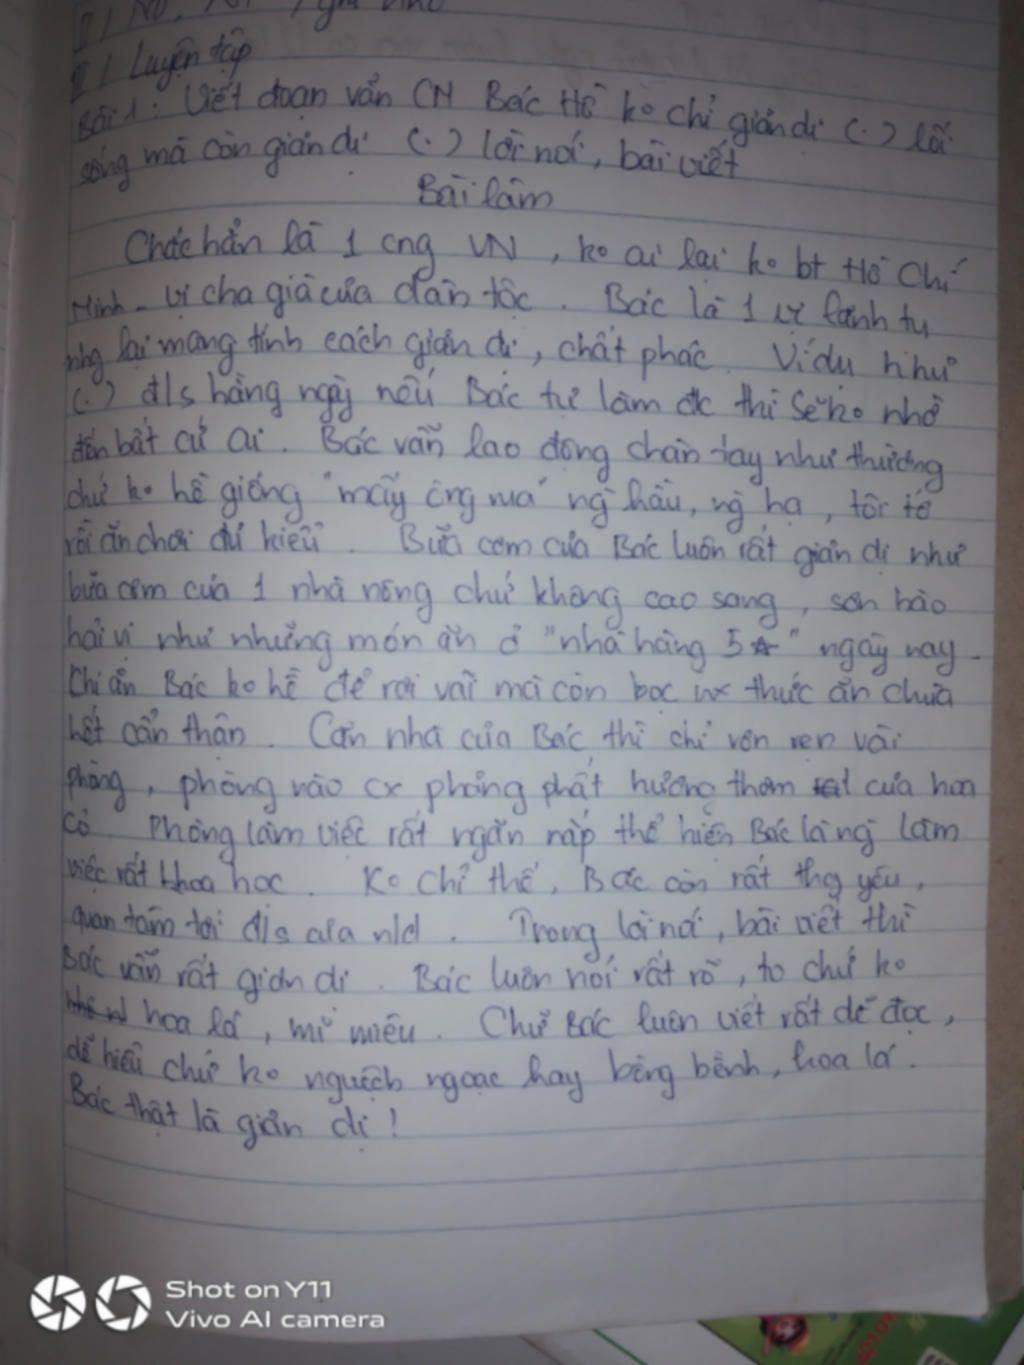 II / Luyện tập
Bài 1 : Viết đoạn văn CM Bác Hồ ko chỉ giản dị (.) lối
sống mà còn giản dị (.) lời nói, bài viết
Bài làm
Chắc hẳn là 1 cng VN , ko ai lại ko bt Hồ Chí
Minh - vị cha già của dân tộc . Bác là 1 vị lãnh tụ
nhg lại mang tính cách giản dị , chất phác . Ví dụ như
(.) đ/s hằng ngày nếu Bác tự làm đc thì sẽ ko nhờ
đến bất cứ ai . Bác vẫn lao động chân tay như thường
chứ ko hề giống "mấy ông mà" ng hầu, ng hạ , tôi tớ
rồi ăn chơi đủ kiểu . Bữa cơm của Bác luôn rất giản dị như
bữa cơm của 1 nhà nông chứ không cao sang , sơn hào
hải vị như những món ăn ở "nhà hàng 5☆" ngày nay .
Khi ăn Bác ko hề để rơi vãi mà còn bọc thức ăn chưa
hết cẩn thận . Căn nhà của Bác thì chỉ vỏn vẹn vài
phòng , phòng nào cx phảng phất hương thơm của hoa
cỏ . Phòng làm việc rất ngăn nắp thể hiện Bác là ng làm
việc rất khoa học . Ko chỉ thế , Bác còn rất thg yêu ,
quan tâm tới đ/s của nld . Trong lời nói , bài viết thì
Bác vẫn rất giản dị . Bác luôn nói rất rõ , to chứ ko
hoa lá , mĩ miều . Chữ Bác luôn viết rất dễ đọc ,
dễ hiểu chứ ko nguệch ngoạc hay bồng bềnh , hoa lá .
Bác thật là giản dị !
Shot on Y11
Vivo AI camera